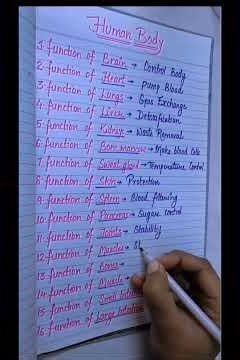 Human Body
1. function of Brain → Control Body
2. function of Heart → Pump Blood
3. function of Lungs → Gas Exchange
4. function of Liver → Detoxification
5. function of Kidney → Waste Removal
6. function of Bone marrow → Make Blood Cells
7. function of Sweat gland → Temperature Control
8. function of Skin → Protection
9. function of Spleen → Blood filtering
10. function of Pancreas → Sugar control
11. function of Joints → Stability
12. function of Muscles →
13. function of Bones →
14. function of Muscle →
15. function of Small
16. function of Large Intestine